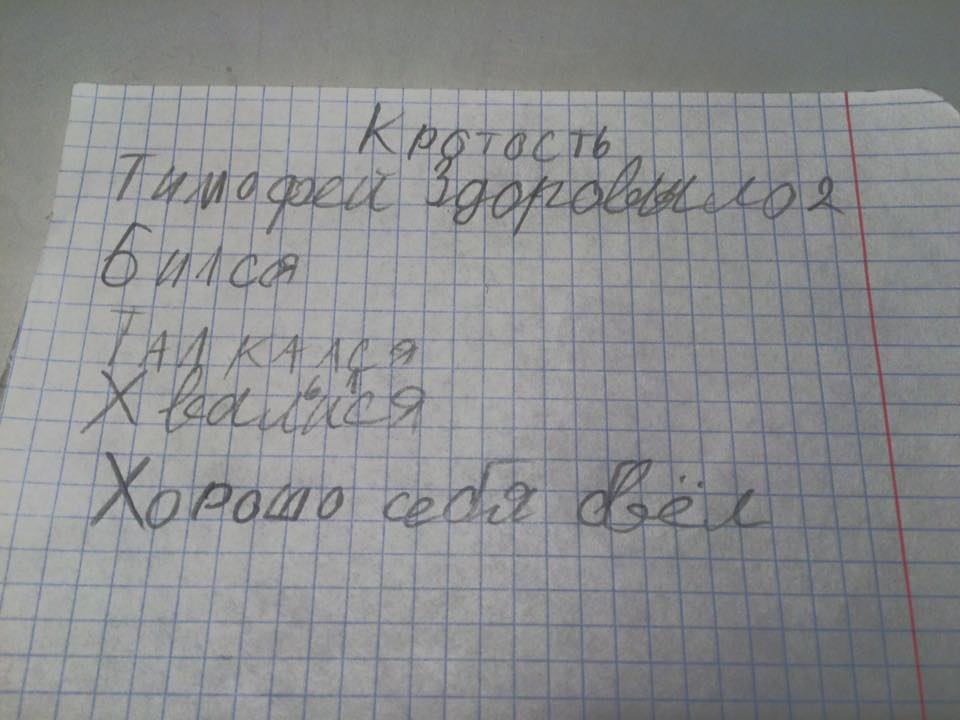 Кротость
Тимофей Здоровыло 2
Бился
Талкался
Хвалился
Хорошо себя вёл